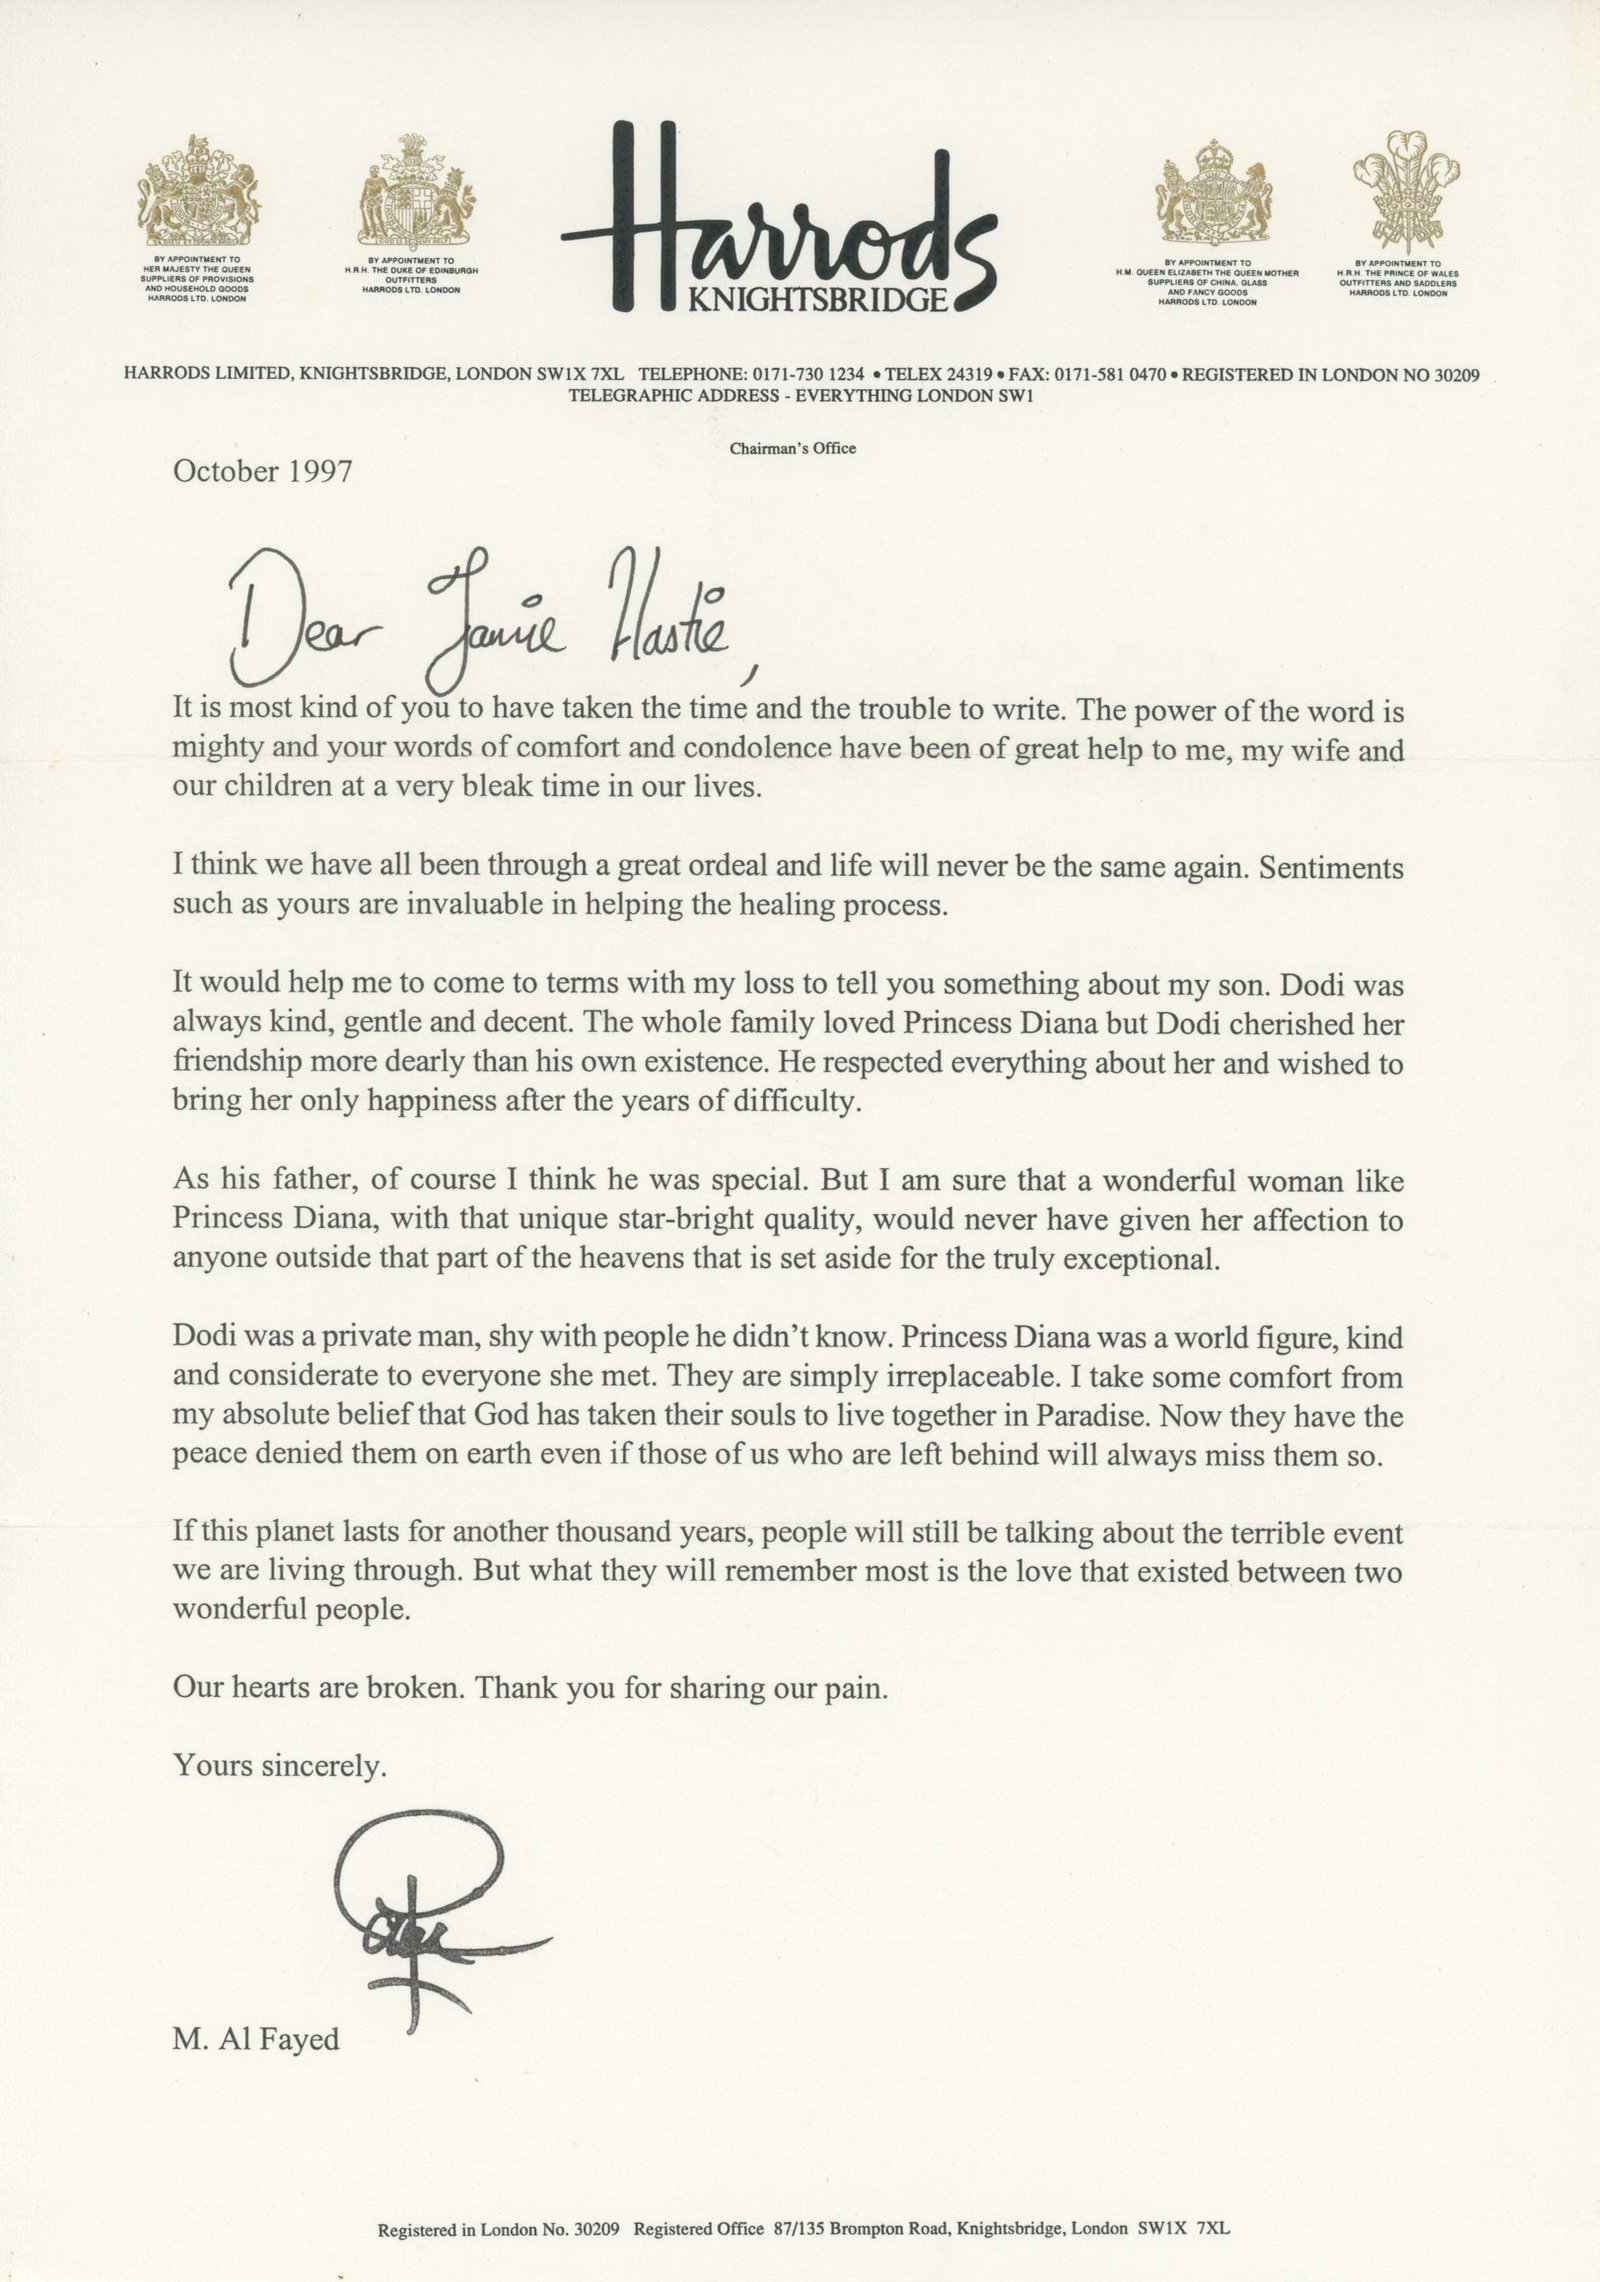 Harrods
KNIGHTSBRIDGE
BY APPOINTMENT TO
HER MAJESTY THE QUEEN
SUPPLIERS OF PROVISIONS
AND HOUSEHOLD GOODS
HARRODS LTD. LONDON
BY APPOINTMENT TO
H.R.H. THE DUKE OF EDINBURGH
OUTFITTERS
HARRODS LTD. LONDON
BY APPOINTMENT TO
H.M. QUEEN ELIZABETH THE QUEEN MOTHER
SUPPLIERS OF CHINA, GLASS
AND FANCY GOODS
HARRODS LTD. LONDON
BY APPOINTMENT TO
H.R.H. THE PRINCE OF WALES
OUTFITTERS AND SADDLERS
HARRODS LTD. LONDON
HARRODS LIMITED, KNIGHTSBRIDGE, LONDON SW1X 7XL TELEPHONE: 0171-730 1234 • TELEX 24319 • FAX: 0171-581 0470 • REGISTERED IN LONDON NO 30209
TELEGRAPHIC ADDRESS - EVERYTHING LONDON SW1
Chairman's Office
October 1997
Dear Jamie Hastie,
It is most kind of you to have taken the time and the trouble to write. The power of the word is
mighty and your words of comfort and condolence have been of great help to me, my wife and
our children at a very bleak time in our lives.
I think we have all been through a great ordeal and life will never be the same again. Sentiments
such as yours are invaluable in helping the healing process.
It would help me to come to terms with my loss to tell you something about my son. Dodi was
always kind, gentle and decent. The whole family loved Princess Diana but Dodi cherished her
friendship more dearly than his own existence. He respected everything about her and wished to
bring her only happiness after the years of difficulty.
As his father, of course I think he was special. But I am sure that a wonderful woman like
Princess Diana, with that unique star-bright quality, would never have given her affection to
anyone outside that part of the heavens that is set aside for the truly exceptional.
Dodi was a private man, shy with people he didn't know. Princess Diana was a world figure, kind
and considerate to everyone she met. They are simply irreplaceable. I take some comfort from
my absolute belief that God has taken their souls to live together in Paradise. Now they have the
peace denied them on earth even if those of us who are left behind will always miss them so.
If this planet lasts for another thousand years, people will still be talking about the terrible event
we are living through. But what they will remember most is the love that existed between two
wonderful people.
Our hearts are broken. Thank you for sharing our pain.
Yours sincerely.
M. Al Fayed
Registered in London No. 30209 Registered Office 87/135 Brompton Road, Knightsbridge, London SW1X 7XL